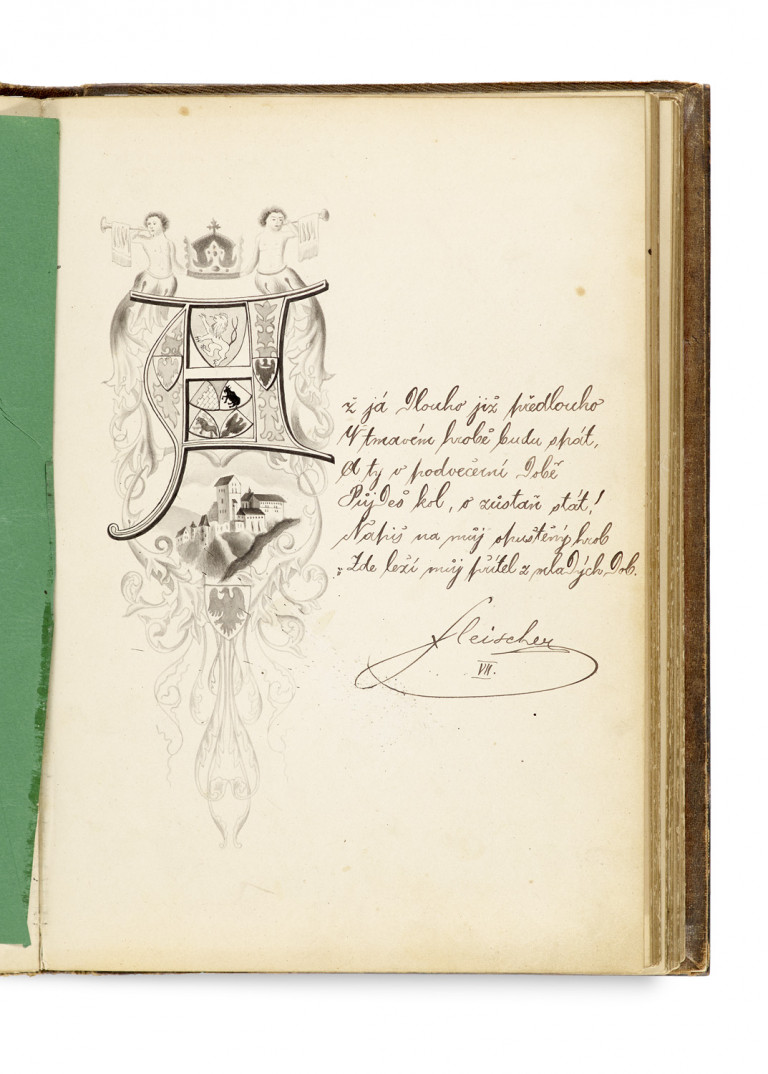 Až já Dlouho již předlouho
V tmavém hrobě budu spát,
A ty v podvečerní Době
Půjdeš kol, o zůstaň stát!
Napiš na můj opuštěný hrob
„Zde leží můj přítel z mladých Dob.
Fleischer
VII.